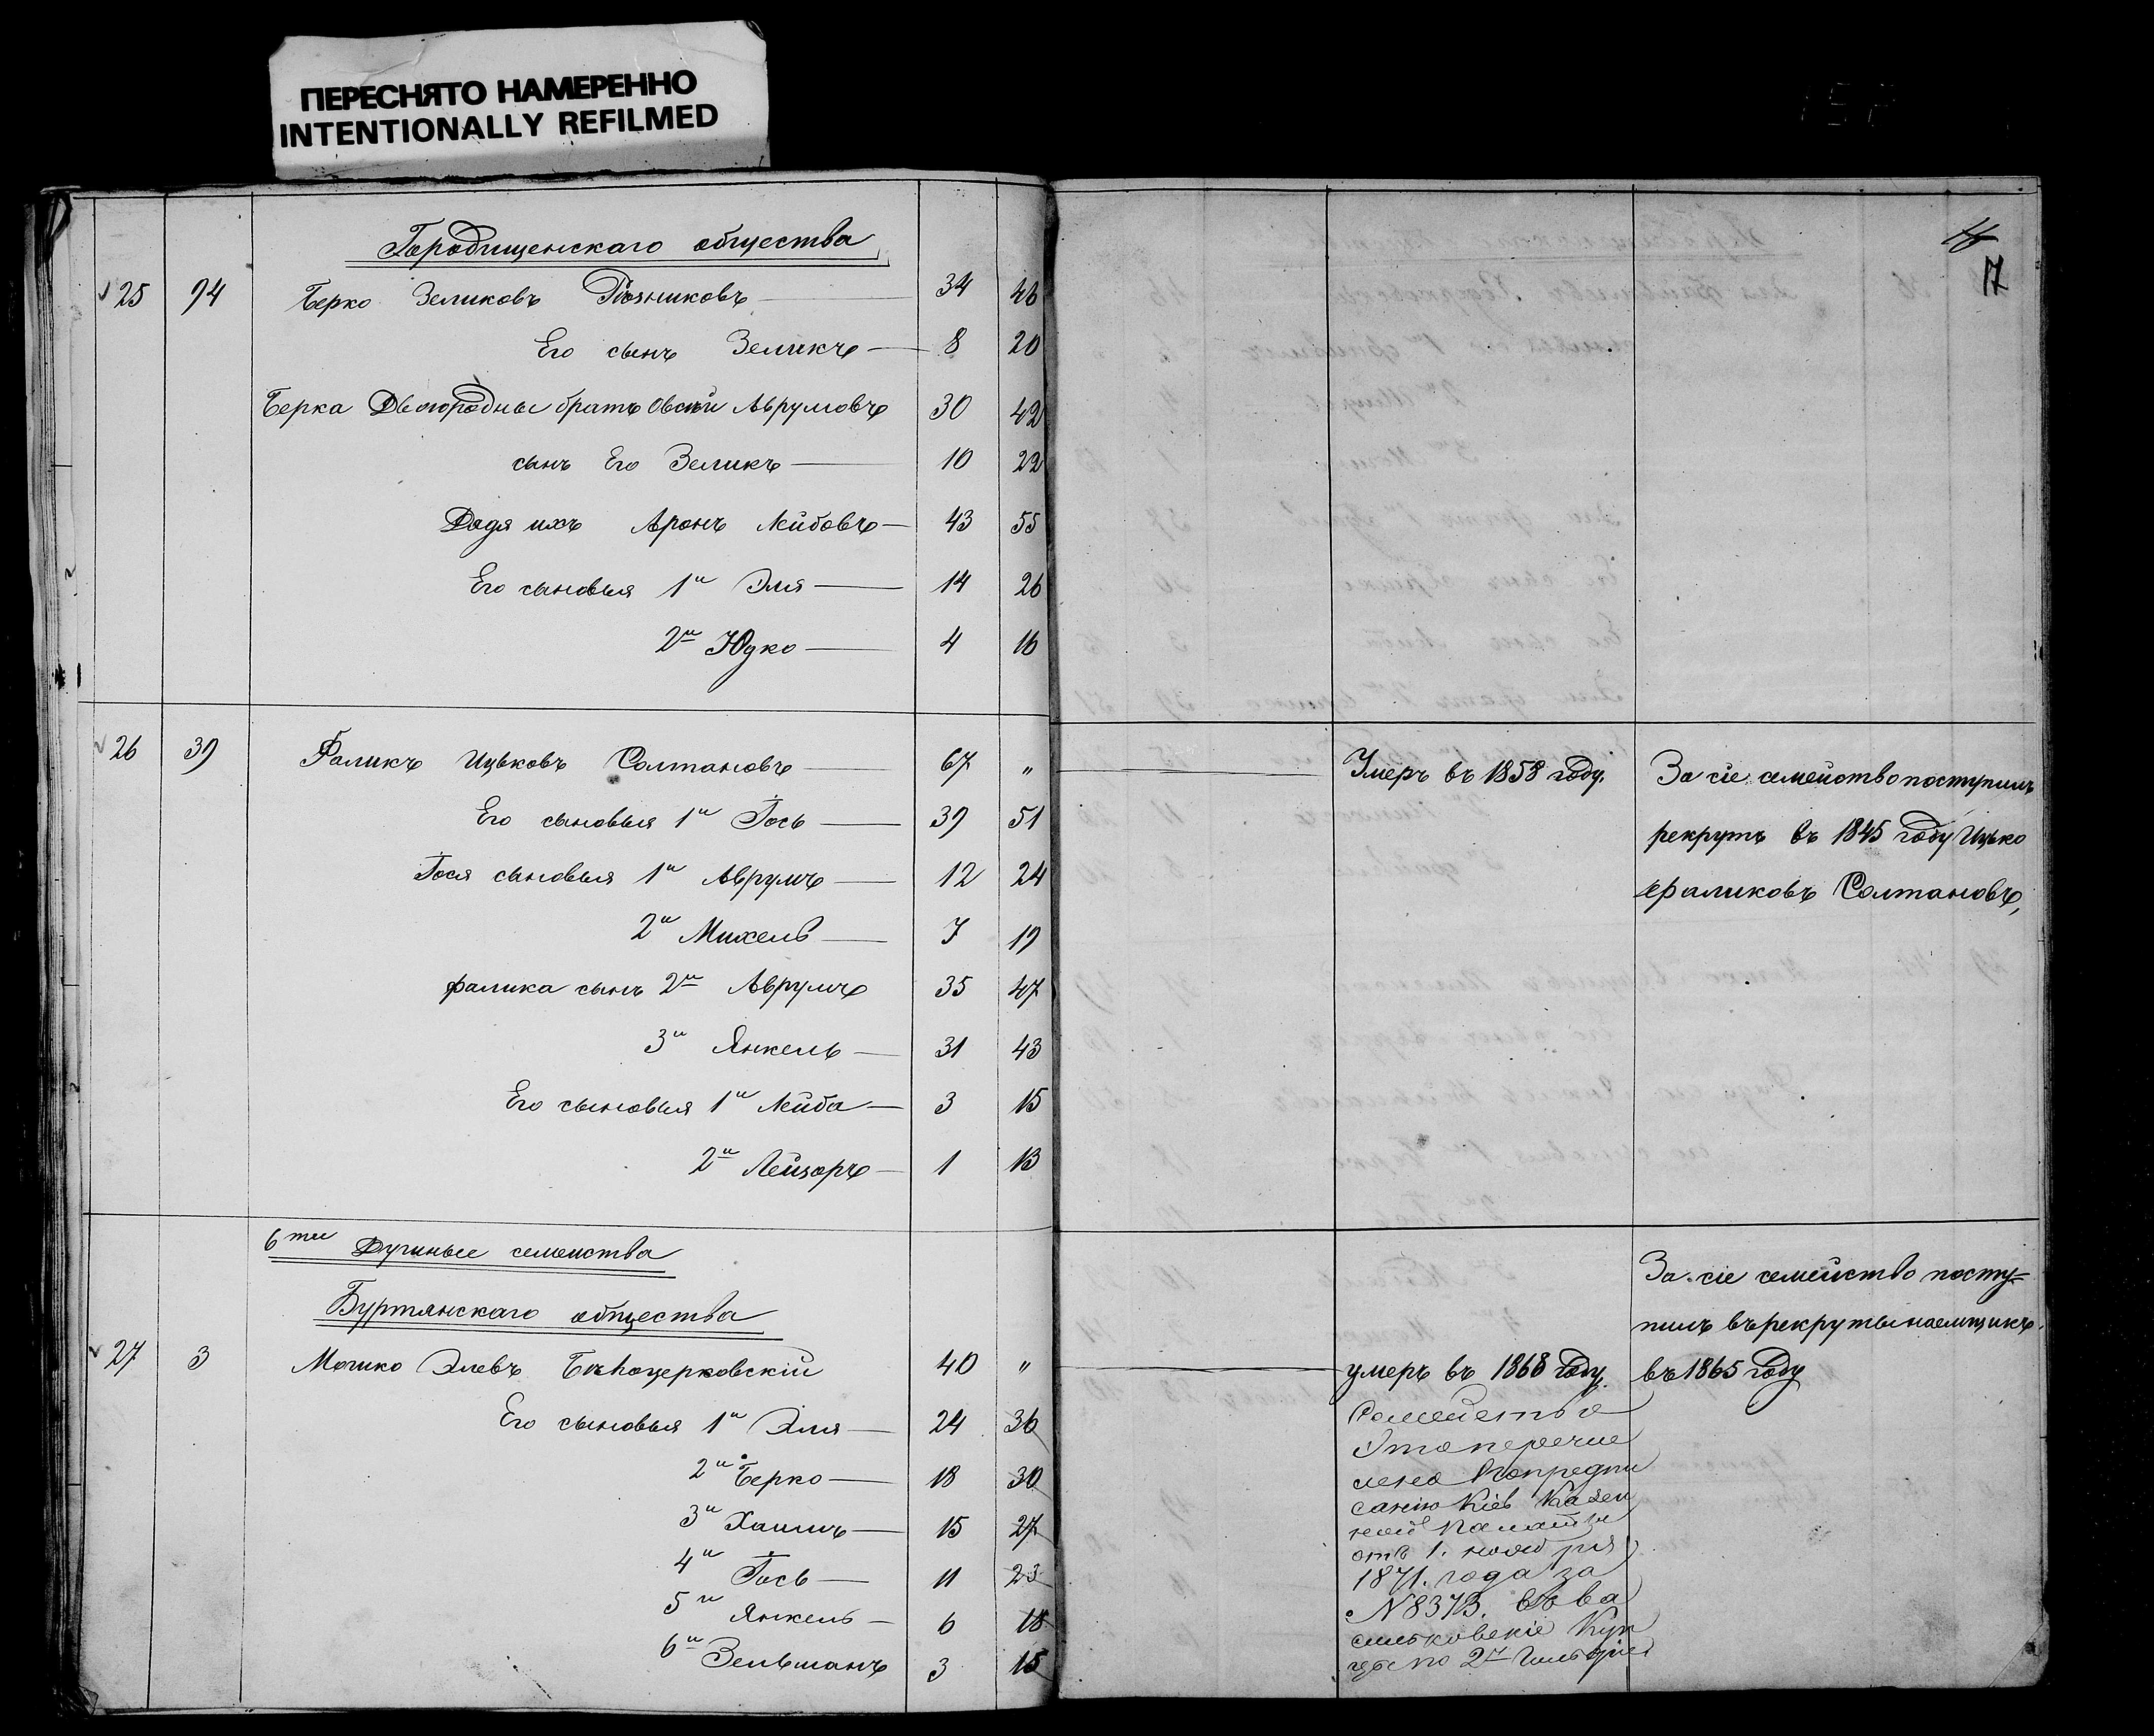 ПЕРЕСНЯТО НАМЕРЕННО
INTENTIONALLY REFILMED
17
Городищенскаго общества
25 94 Берко Зеликовъ 34 46
Его сынъ Зеликъ 8 20
Берка Двоюродные братъ Овсѣй Аврумовъ 30 42
сынъ Его Зеликъ 10 22
Дядя ихъ Аронъ Лейбовъ 43 55
Его сыновья 1й Эля 14 26
2й Юдко 4 16
26 39 Фаликъ Ицьковъ Солтановъ 67 „ Умеръ въ 1858 году. За сіе семейство поступилъ
Его сыновья 1й Іось 39 51 рекрутъ въ 1845 году Ицько
Іося сыновья 1й Аврумъ 12 24 Фаликовъ Солтановъ,
2й Михель 7 19
Фалика сынъ 2й Аврумъ 35 47
3й Янкель 31 43
Его сыновья 1й Лейба 3 15
2й Лейзоръ 1 13
6ти Душные семейства
Буртянскаго общества
27 3 Мошко Элевъ Бѣлоцерковскій 40 „ умеръ въ 1868 году.
За сіе семейство посту=
пилъ въ рекруты наемщикъ
въ 1865 году
Его сыновья 1й Эля 24 36
2й Берко 18 30
3й Хаимъ 15 27
4й Іось 11 23
5й Янкель 6 18
6й Зельманъ 3 15
Семейство
Это перечис
лено по предпи
санію Кіев Казен
ной Палаты
отъ 1. ноября
1871. года за
№ 8373. въ Ва
сильковскіе Куп
цы по 2й Гильдіи